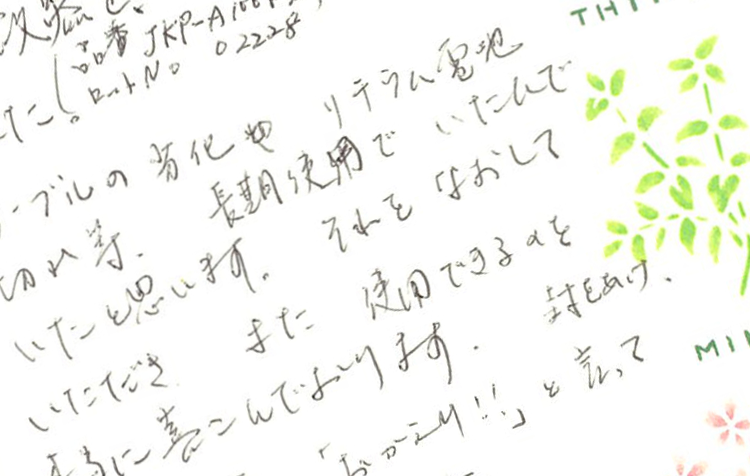 品番 JKP-A
ロットNo 02228
た!
ーブルの劣化や リチウム電池
切れ等、長期使用でいたんで
いたと思います。それをなおして
いただき また 使用できるのを
本当に喜こんでおります。封をあけ、
「おかえり!!」と言って
TH
MI